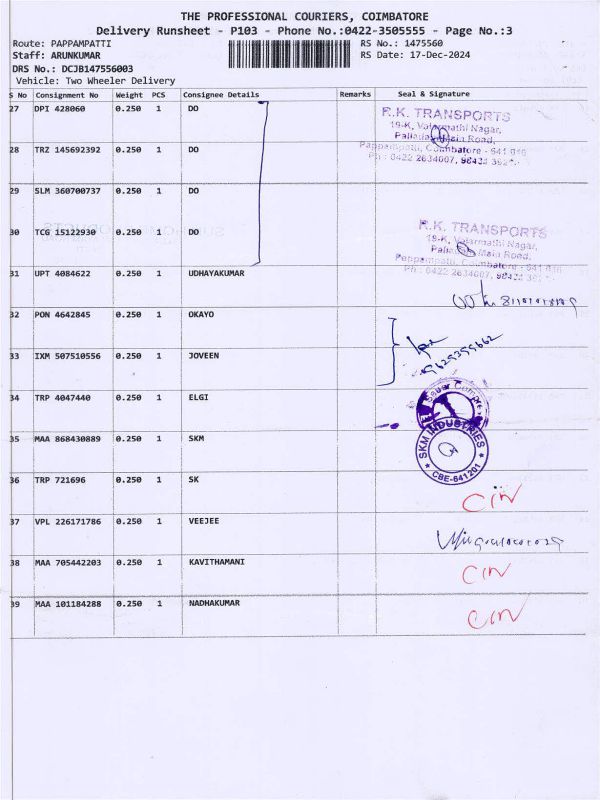 THE PROFESSIONAL COURIERS, COIMBATORE
Delivery Runsheet - P103 - Phone No.:0422-3505555 - Page No.:3
Route: PAPPAMPATTI RS No.: 1475560
Staff: ARUNKUMAR RS Date: 17-Dec-2024
DRS No.: DCJB147556003
Vehicle: Two Wheeler Delivery
S No Consignment No Weight PCS Consignee Details Remarks Seal & Signature
27 DPI 428060 0.250 1 DO
R.K. TRANSPORTS
19-K, Valarmathi Nagar,
Palladam Main Road,
Pappampatti, Coimbatore - 641 016
Ph : 0422 2634007,
28 TRZ 145692392 0.250 1 DO
29 SLM 360700737 0.250 1 DO
30 TCG 15122930 0.250 1 DO
R.K. TRANSPORTS
19-K, Valarmathi Nagar,
Palladam Main Road,
Pappampatti, Coimbatore - 641 016
Ph : 0422 2634007,
31 UPT 4084622 0.250 1 UDHAYAKUMAR
32 PON 4642845 0.250 1 OKAYO
33 IXM 507510556 0.250 1 JOVEEN
34 TRP 4047440 0.250 1 ELGI
35 MAA 868430889 0.250 1 SKM
SKM INDUSTRIES
CBE-641201
36 TRP 721696 0.250 1 SK
CIN
37 VPL 226171786 0.250 1 VEEJEE
38 MAA 705442203 0.250 1 KAVITHAMANI
CIN
39 MAA 101184288 0.250 1 NADHAKUMAR
CIN